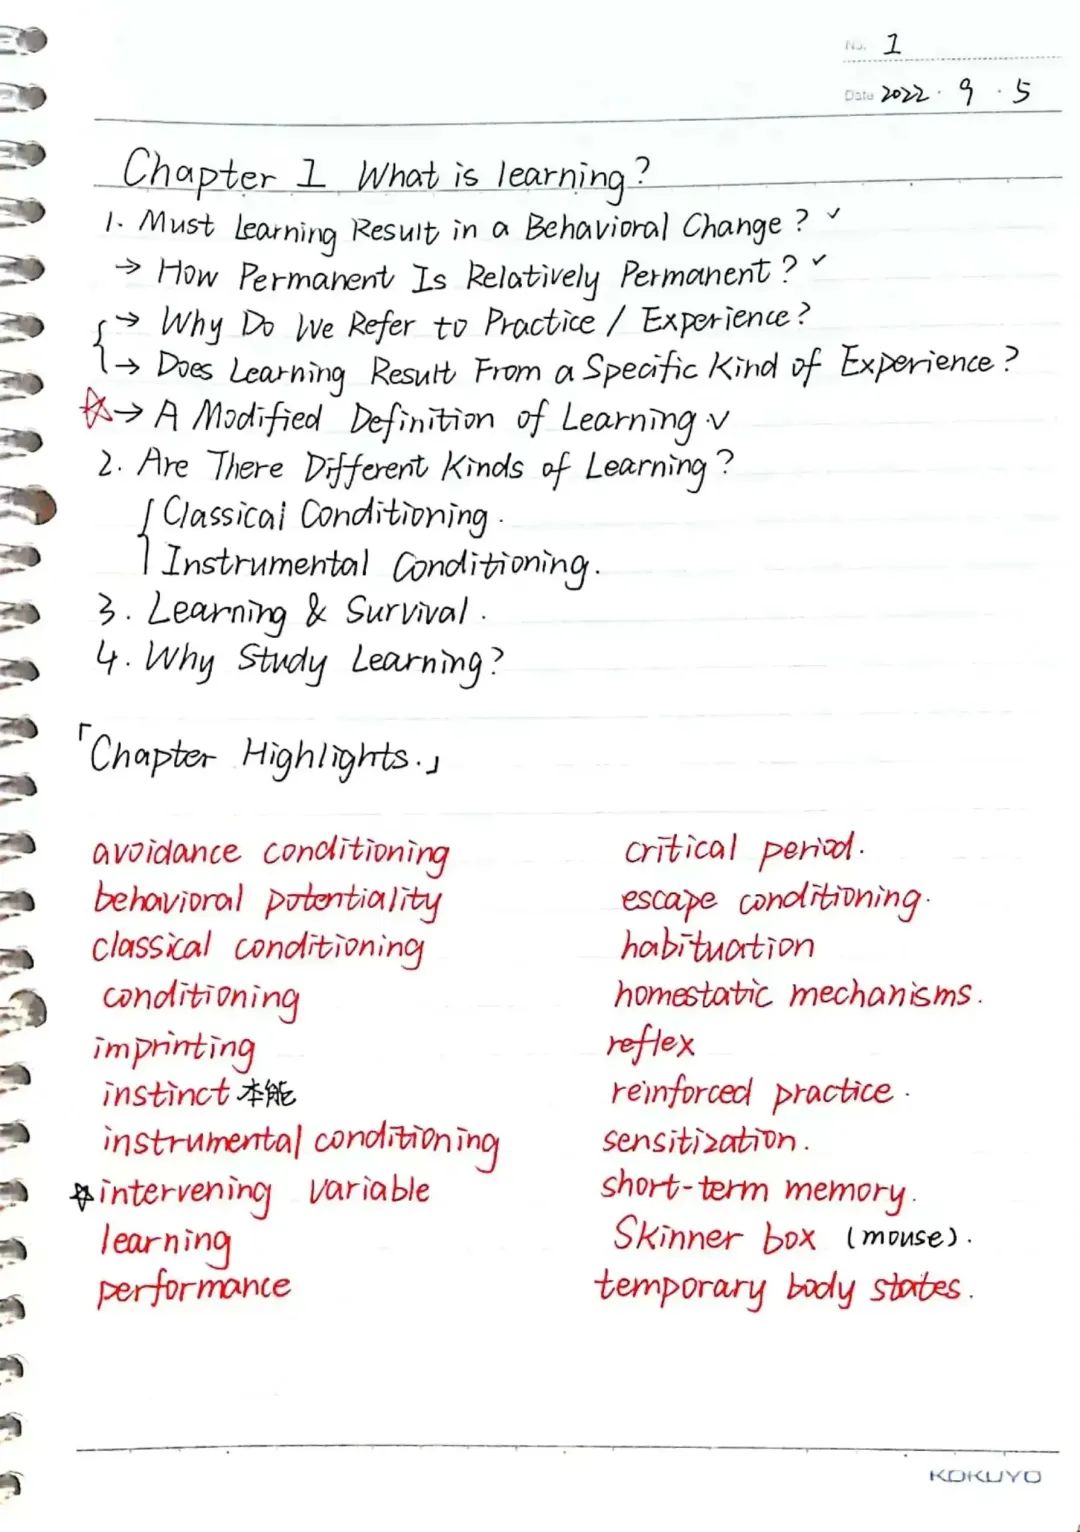 No. 1
Date 2022 · 9 · 5
Chapter 1 What is learning?
1. Must Learning Result in a Behavioral Change? ✓
→ How Permanent Is Relatively Permanent? ✓
→ Why Do We Refer to Practice / Experience?
→ Does Learning Result From a Specific Kind of Experience?
☆→ A Modified Definition of Learning. ✓
2. Are There Different Kinds of Learning?
Classical Conditioning.
Instrumental Conditioning.
3. Learning & Survival.
4. Why Study Learning?
「Chapter Highlights.」
avoidance conditioning
behavioral potentiality
classical conditioning
conditioning
imprinting
instinct 本能
instrumental conditioning
☆intervening variable
learning
performance
critical period.
escape conditioning.
habituation
homestatic mechanisms.
reflex
reinforced practice.
sensitization.
short-term memory.
Skinner box (mouse).
temporary body states.
KOKUYO